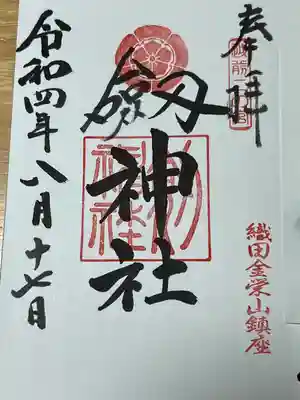 奉拝
織田金栄山鎮座
劔神社
令和四年八月十七日